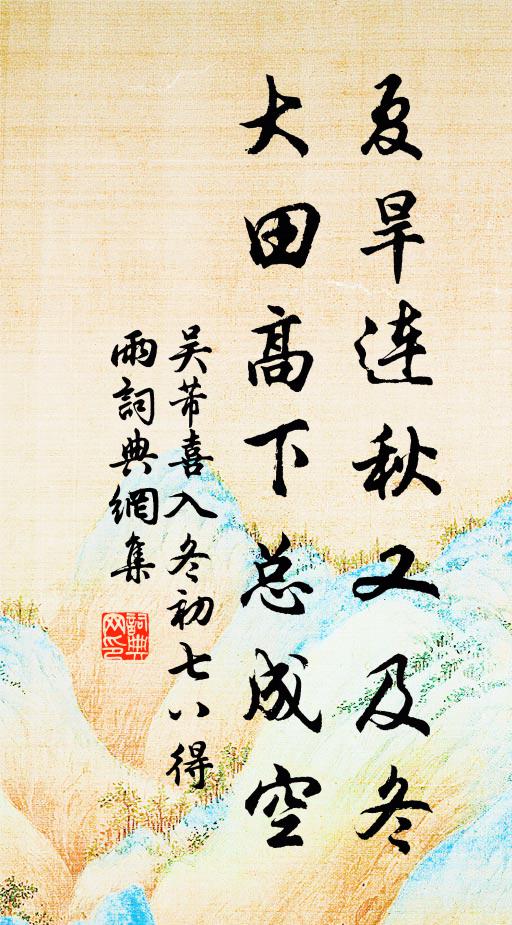 夏旱连秋又及冬
大田高下总成空
吴芾喜入冬初七八得
雨詞典網集
詞典网印